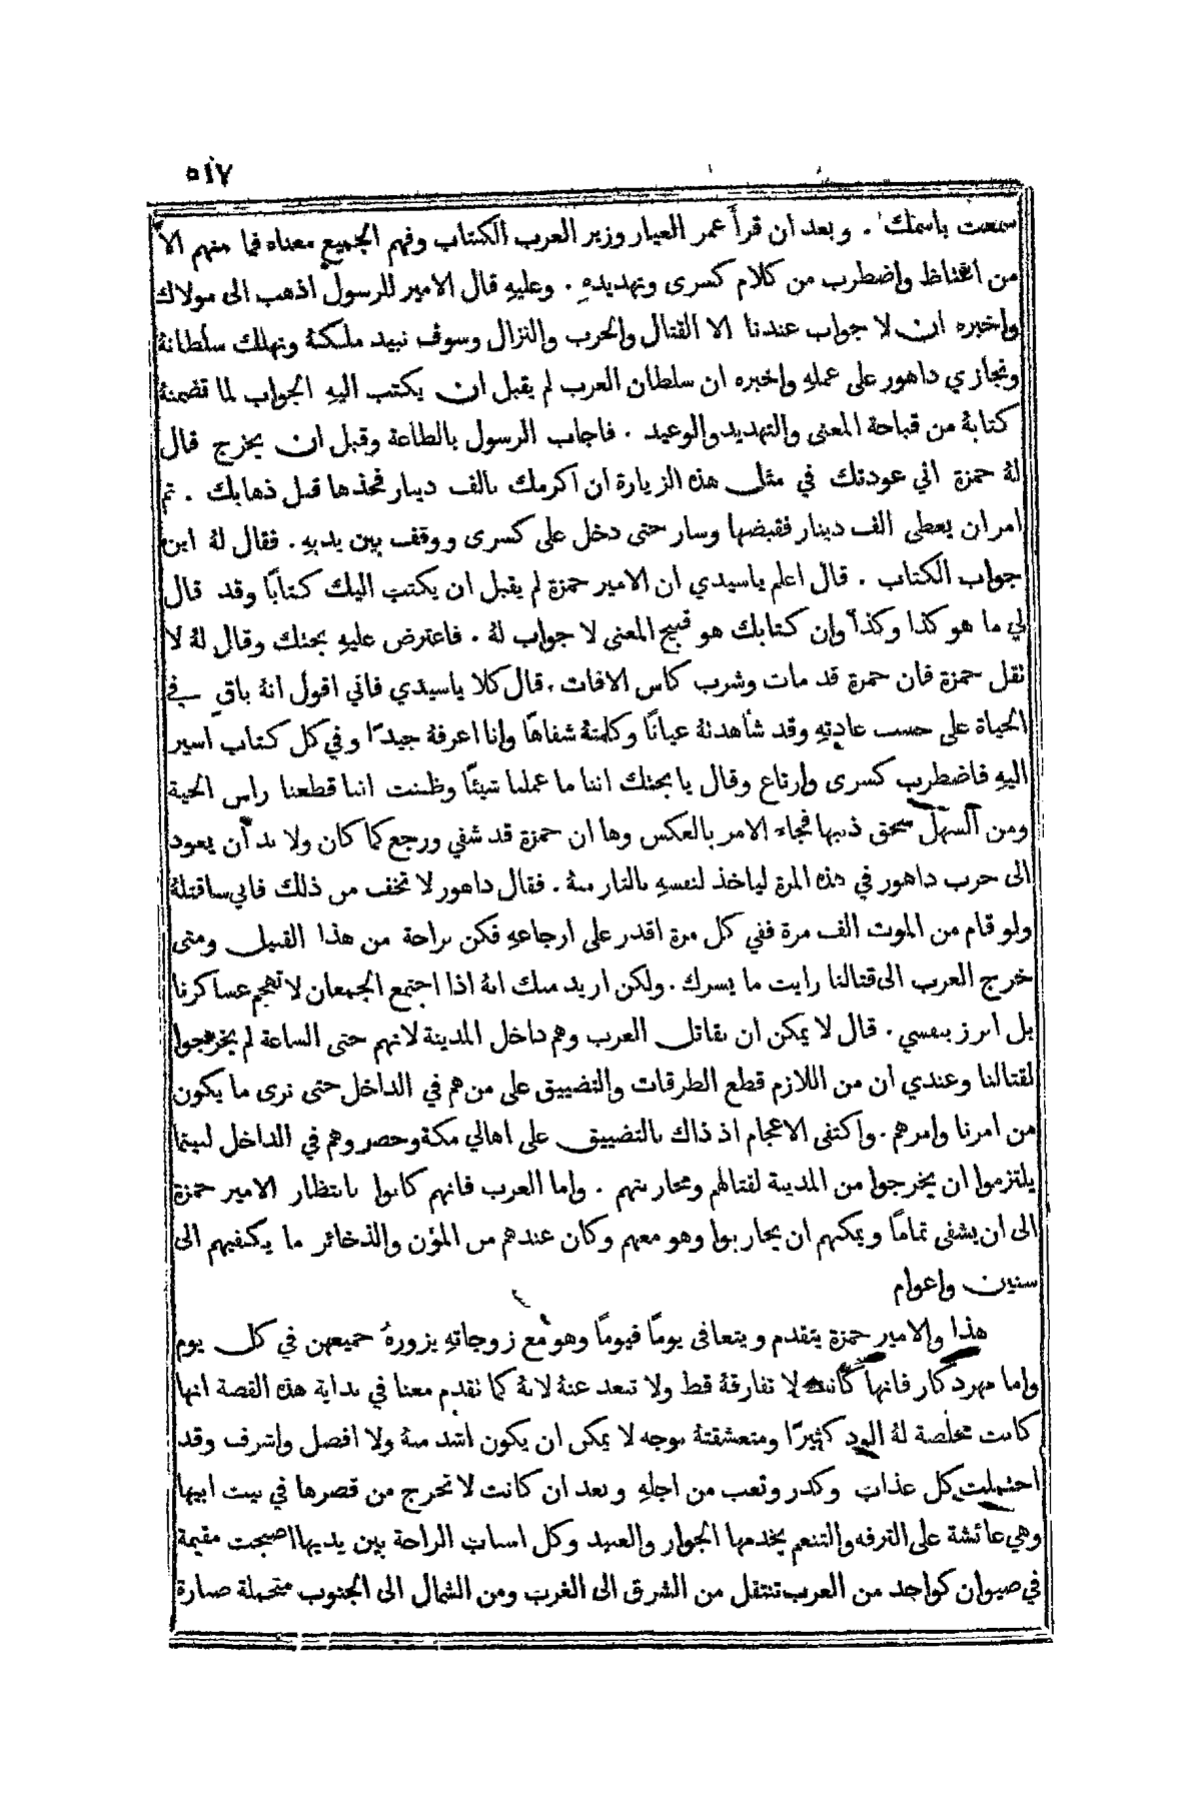 ٥١٧
سمعت باسمك . وبعد ان قرأ عمر العيار وزير العرب الكتاب وفهم الجميع معناه فما منهم الاّ
من اغتاظ واضطرب من كلام كسرى وتهديدهِ . وعليهِ قال الامير للرسول اذهب الى مولاك
واخبره ان لا جواب عندنا الا القتال والحرب والنزال وسوف نبيد ملكهُ ونهلك سلطانهُ
ونجازي داهور على عملهِ واخبره ان سلطان العرب لم يقبل ان يكتب اليهِ الجواب لما تضمنهُ
كتابهُ من قباحة المعنى والتهديد والوعيد . فاجاب الرسول بالطاعة وقبل ان يخرج قال
لهُ حمزة اني عودتك في مثل هذه الزيارة ان اكرمك بالف دينار فخذها قبل ذهابك . ثم
امر ان يعطى الف دينار فقبضها وسار حتى دخل على كسرى ووقف بين يديهِ . فقال لهُ اين
جواب الكتاب . قال اعلم ياسيدي ان الامير حمزة لم يقبل ان يكتب اليك كتابًا وقد قال
لي ما هو كذا وكذا وان كتابك هو قبيح المعنى لا جواب لهُ . فاعترض عليهِ بختك وقال لهُ لا
نقل حمزة فان حمزة قد مات وشرب كاس الافات . قال كلا ياسيدي فاني اقول انهُ باقٍ في
الحياة على حسب عادتهِ وقد شاهدتهُ عيانًا وكلمتهُ شفاهًا وانا اعرفهُ جيدًا وفي كل كتاب اسير
اليهِ فاضطرب كسرى وارتاع وقال يا بختك اننا ما عملنا شيئًا وظننت اننا قطعنا راس الحية
ومن السهل سحق ذنبها فجاء الامر بالعكس وها ان حمزة قد شفي ورجع كما كان ولا بد أن يعود
الى حرب داهور في هذه المرة لياخذ لنفسهِ بالثار منهُ . فقال داهور لا تخف من ذلك فاني ساقتلهُ
ولو قام من الموت الف مرة ففي كل مرة اقدر على ارجاعهِ فكن براحة من هذا القبيل ومتى
خرج العرب الى قتالنا رايت ما يسرك . ولكن اريد منك انهُ اذا اجتمع الجمعان لا تهجم عساكرنا
بل ابرز بنفسي . قال لا يمكن ان نقاتل العرب وهم داخل المدينة لانهم حتى الساعة لم يخرجوا
لقتالنا وعندي ان من اللازم قطع الطرقات والتضييق على من هم في الداخل حتى نرى ما يكون
من امرنا وامرهم . واكتفى الاعجام اذ ذاك بالتضييق على اهالي مكة وحصروهم في الداخل لبينما
يلتزموا ان يخرجوا من المدينة لقتالهم ومحاربتهم . واما العرب فانهم كانوا بانتظار الامير حمزة
الى ان يشفى تمامًا ويمكنهم ان يحاربوا وهو معهم وكان عندهم من المؤن والذخائر ما يكفيهم الى
سنين واعوام
هذا والامير حمزة يتقدم ويتعافى يومًا فيومًا وهو مع زوجاتهِ يزورهُ جميعهن في كل يوم
واما مهردكار فانها كانت لا تفارقهُ قط ولا تبعد عنهُ لانهُ كما نقدم معنا في بداية هذه القصة انها
كانت مخلصة لهُ الود كثيرًا ومتعشقتهُ بوجه لا يمكن ان يكون اشد منهُ ولا افضل واشرف وقد
احتملت كل عذاب وكدر وتعب من اجلهِ وبعد ان كانت لا تخرج من قصرها في بيت ابيها
وهي عائشة على الترفه والتنعم يخدمها الجوار والعبيد وكل اسباب الراحة بين يديها اصبحت مقيمة
في صيوان كواحد من العرب تنتقل من الشرق الى الغرب ومن الشمال الى الجنوب متحملة صابرة